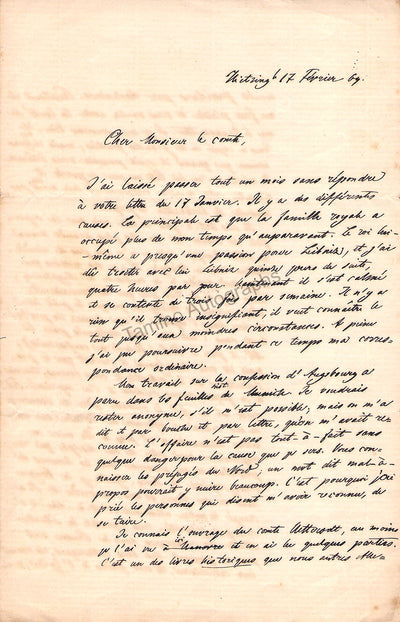 Hietzing 17 Février 69.
Cher Monsieur le comte,
J'ai laissé passer tout un mois sans répondre
à votre lettre du 17 Janvier. Il y a des différents
causes. La principale est que la famille royale a
occupé plus de mon temps qu'auparavant. Le roi lui-
même a presqu'une passion pour Leibniz, et j'ai
dû traiter avec lui Leibniz quinze jours de suite,
quatre heures par jour. Maintenant il s'est calmé
et se contente de trois fois par semaine. Il n'y a
rien qu'il trouve insignifiant, il veut connaître le
tout jusqu'aux moindres circonstances. A peine
j'ai pu poursuivre pendant ce temps ma corres-
pondance ordinaire.
Mon travail sur la confession d'Augsbourg a
paru dans les feuilles de Munich. Je voudrais
rester anonyme, s'il m'est possible, mais on m'a
dit et par bouche et par lettre, qu'on m'avait re-
connu. L'affaire n'est pas tout-à-fait sans
quelque danger pour la cause que je sers. Vous con-
naissez les préjugés du Nord, un mot dit mal-à-
propos pourrait y nuire beaucoup. C'est pourquoi j'ai
prié les personnes qui disent m'avoir reconnu, de
se taire.
Je connais l'ouvrage du comte, au moins
je l'ai vu à Hanovre et en ai lu quelques parties.
C'est un des livres historiques que nous autres Alle-
Tamino Autographs